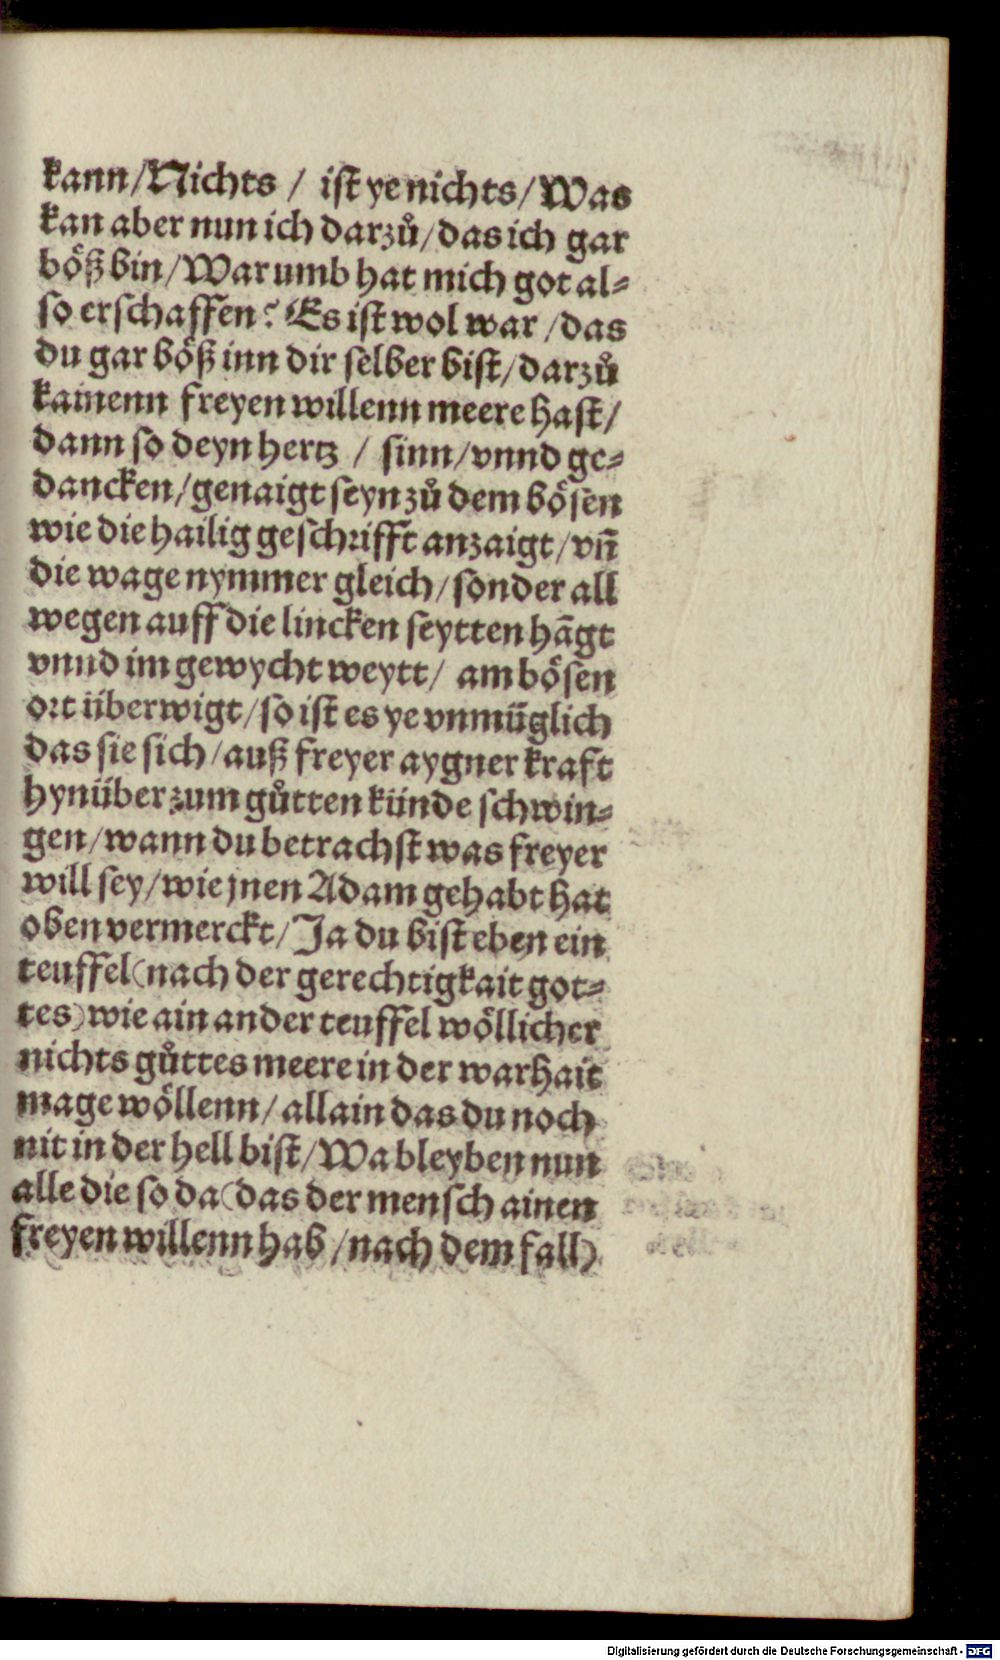 kann/Nichts / iſt ye nichts/Was
kan aber nun ich darzů/das ich gar
böß bin/Warumb hat mich got al⸗
ſo erſchaffen? Es iſt wol war /das
du gar böß inn dir ſelber biſt/darzů
kainenn freyen willenn meere haſt/
dann ſo deyn hertz / ſinn/vnnd ge⸗
dancken/genaigt ſeyn zů dem böſen
wie die hailig geſchꝛifft anzaigt/vñ
die wage nymmer gleich/ſonder all
wegen auff die lincken ſeytten hãgt
vnnd im gewycht weytt/ am böſen
oꝛt überwigt/ſo iſt es ye vnmüglich
das ſie ſich/auß freyer aygner kraft
hynüber zum gůtten künde ſchwin⸗
gen/wann du betrachſt was freyer
will ſey/wie jnen Adam gehabt hat
oben vermerckt/Ja du biſt eben ein
teuffel(nach der gerechtigkait got⸗
tes)wie ain ander teuffel wöllicher
nichts gůttes meere in der warhait
mage wöllenn/allain das du noch
nit in der hell biſt/Wa bleyben nun
alle die ſo da(das der menſch ainen
freyen willenn hab /nach dem fall)
Digitalisierung gefördert durch die Deutsche Forschungsgemeinschaft - DFG